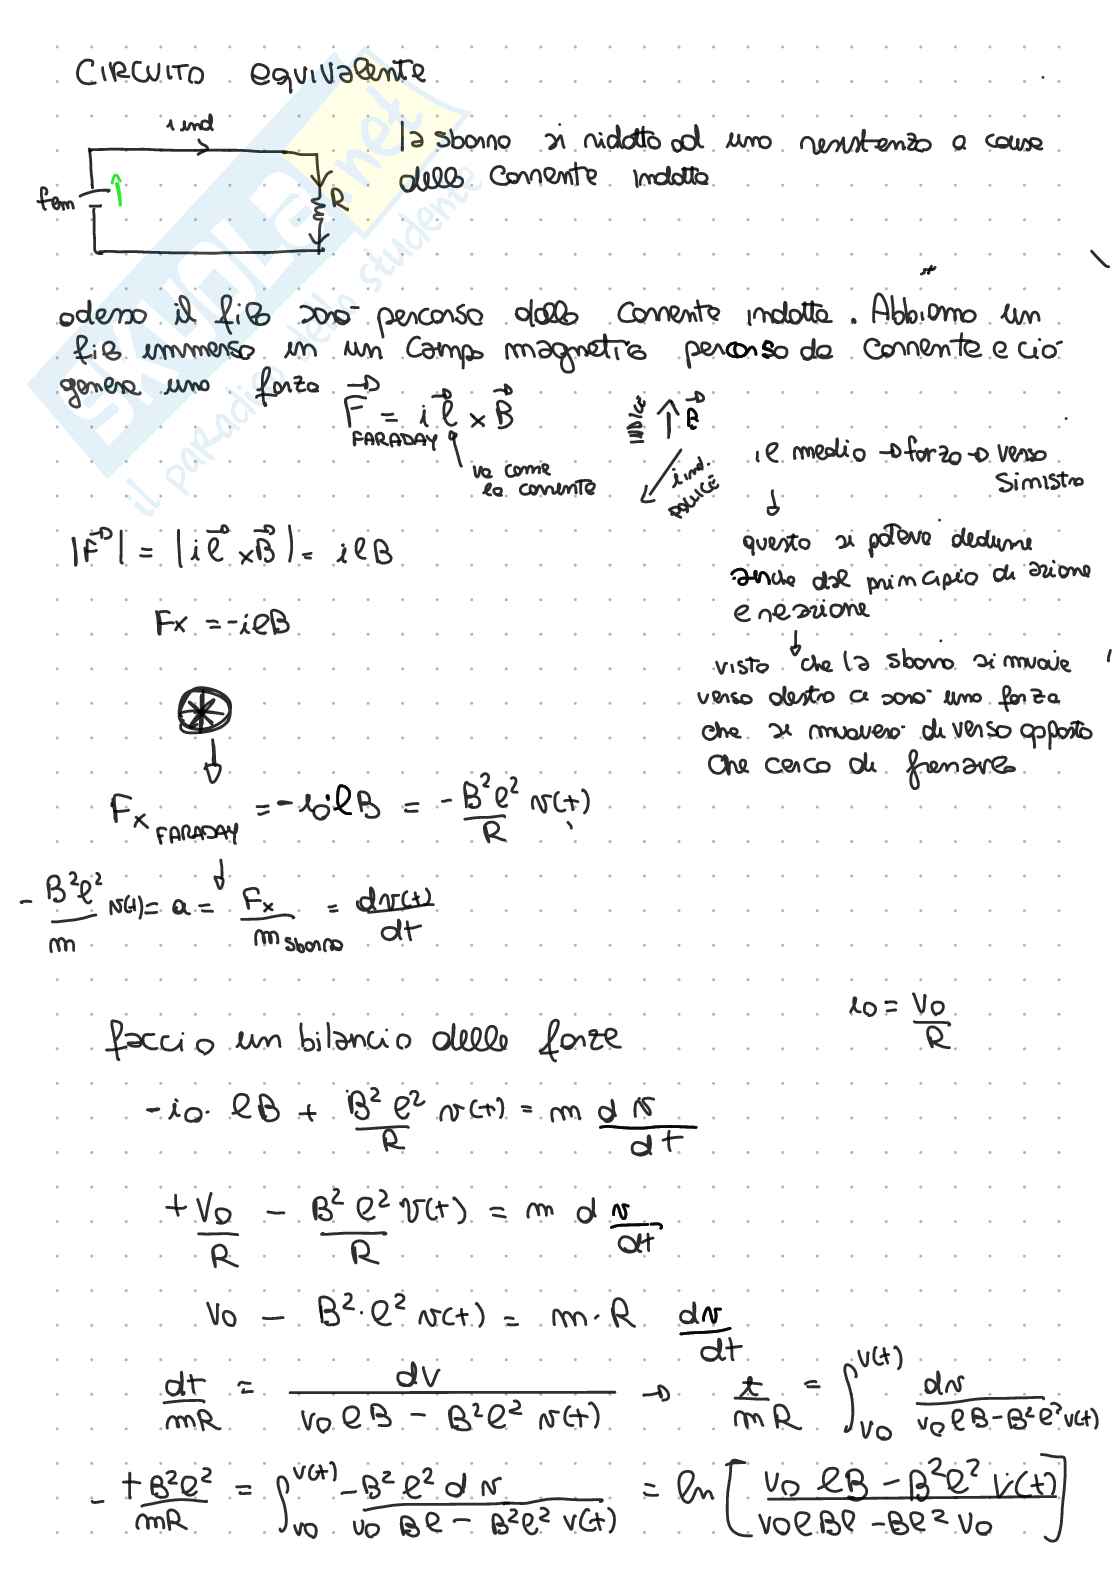 CIRCUITO equivalente
i ind
fem
R
la sbarra si ridotta ad una resistenza a causa
della corrente indotta
adesso il filo sarà percorso dalla corrente indotta. Abbiamo un
filo immerso in un campo magnetico percorso da corrente e ciò
genera una forza
F = i l × B
FARADAY
va come
la corrente
INDICE
B
i ind.
POLLICE
il medio → forza → verso
sinistra
questo si poteva dedurre
anche dal principio di azione
e reazione
visto che la sbarra si muove
verso destra ci sarà una forza
che si muoverà di verso opposto
che cerca di frenarlo
|F| = |i l × B| = i l B
Fx = -i l B
Fx FARADAY = - i0 l B = - B² l² / R v(t)
- B² l² / m v(t) = a = Fx / m sbarra = dv(t) / dt
i0 = V0 / R
faccio un bilancio delle forze
- i0 · l B + B² l² / R v(t) = m dv / dt
+ V0 / R - B² l² / R v(t) = m dv / dt
V0 - B² · l² v(t) = m · R dv / dt
dt / mR = dv / V0 l B - B² l² v(t) → t / mR = ∫ V0 v(t) dv / V0 l B - B² l² v(t)
- t B² l² / mR = ∫ V0 v(t) - B² l² dv / V0 B l - B² l² v(t) = ln [ V0 l B - B² l² v(t) / V0 l B l - B l² V0 ]
SKUOLA.net
il paradiso dello studente